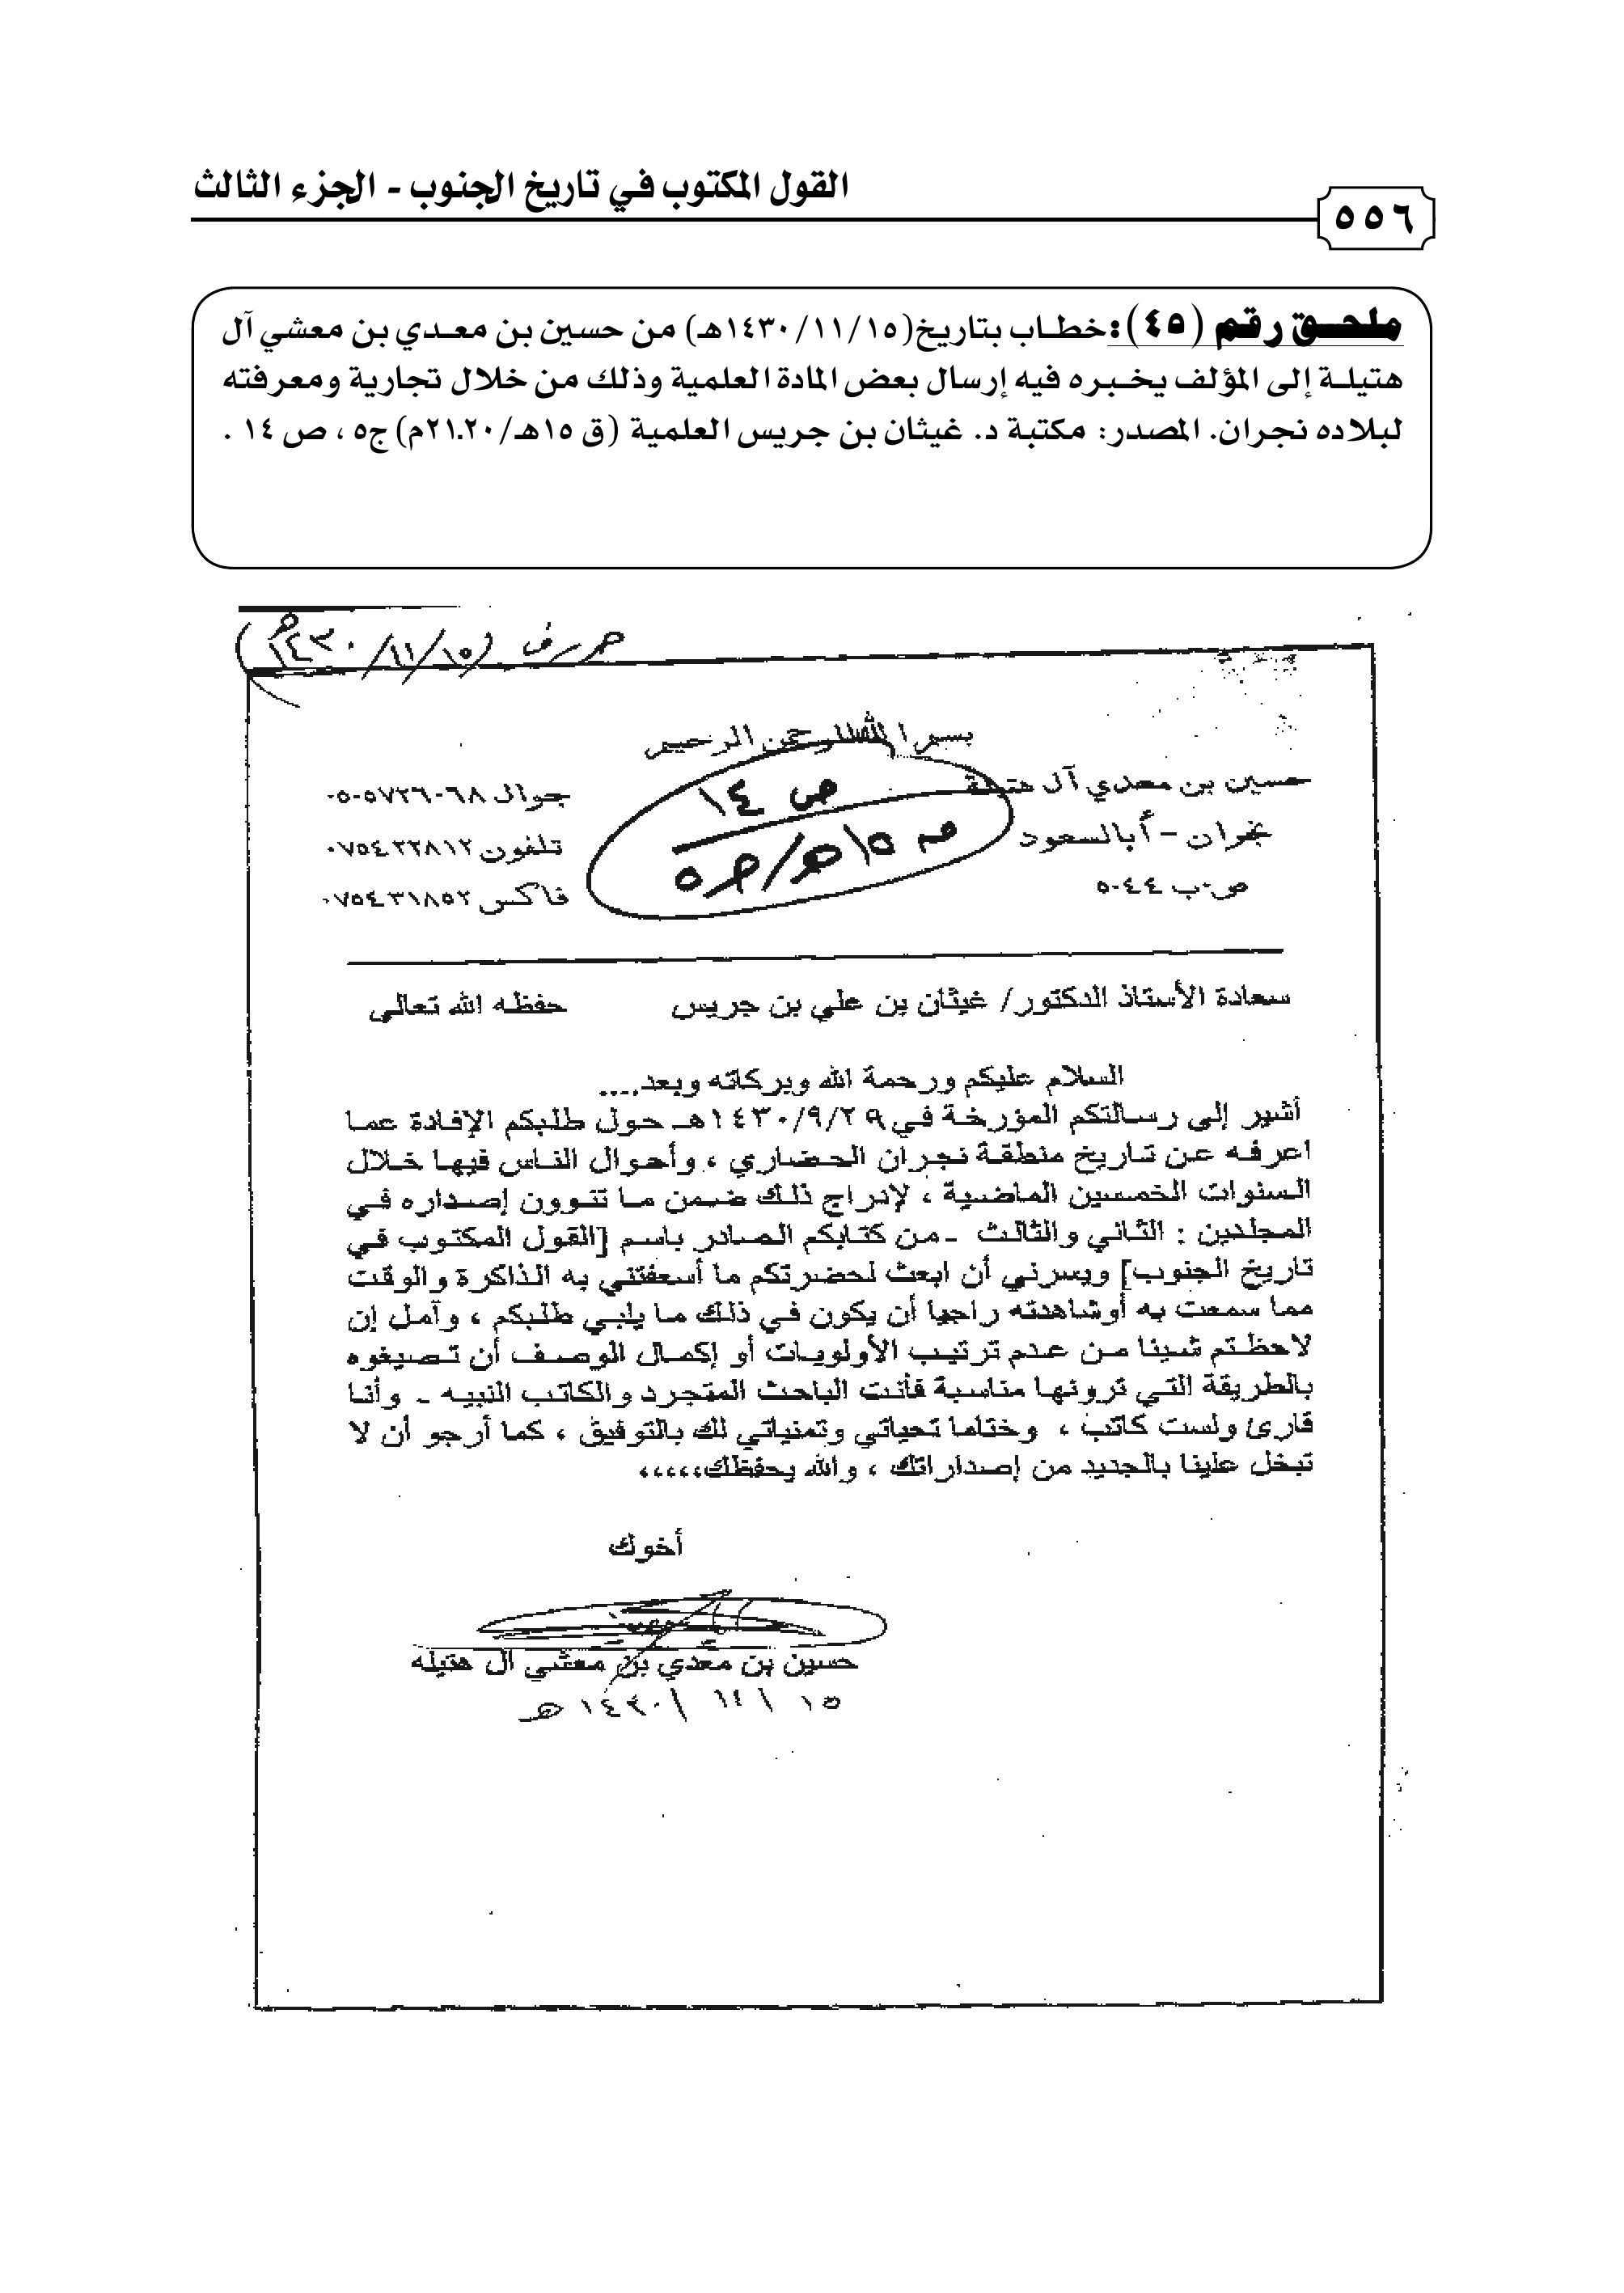 القول المكتوب في تاريخ الجنوب - الجزء الثالث
٥٥٦
ملحق رقم (٤٥): خطاب بتاريخ (١٤٣٠/١١/١٥هـ) من حسين بن معدي بن معشي آل
هتيلة إلى المؤلف يخبره فيه إرسال بعض المادة العلمية وذلك من خلال تجارية ومعرفته
لبلاده نجران. المصدر: مكتبة د. غيثان بن جريس العلمية (ق ١٥هـ/٢١.٢٠م) ج٥ ، ص ١٤ .
(١٤٣٠/١١/١٥هـ)
بسم الله الرحمن الرحيم
حسين بن معدي آل هتيلة
جوال ٠٥٠٥٧٢٦٠٦٨
ص ١٤
نجران - أبا السعود
تلفون ٠٧٥٤٢٢٨١٢
١٥هـ/ج٥
ص.ب ٥٠٤٤
فاكس ٠٧٥٤٣١٨٥٢
سعادة الأستاذ الدكتور/ غيثان بن علي بن جريس حفظه الله تعالى
السلام عليكم ورحمة الله وبركاته وبعد....
أشير إلى رسالتكم المؤرخة في ١٤٣٠/٩/٢٩هـ حول طلبكم الإفادة عما
اعرفه عن تاريخ منطقة نجران الحضاري ، وأحوال الناس فيها خلال
السنوات الخمسين الماضية ، لإدراج ذلك ضمن ما تنوون إصداره في
المجلدين : الثاني والثالث - من كتابكم الصادر باسم [القول المكتوب في
تاريخ الجنوب] ويسرني أن ابعث لحضرتكم ما أسعفتني به الذاكرة والوقت
مما سمعت به أوشاهدته راجيا أن يكون في ذلك ما يلبي طلبكم ، وآمل إن
لاحظتم شينا من عدم ترتيب الأولويات أو إكمال الوصف أن تصيغوه
بالطريقة التي ترونها مناسبة فأنت الباحث المتجرد والكاتب النبيه - وأنا
قارئ ولست كاتب ، وختاما تحياتي وتمنياتي لك بالتوفيق ، كما أرجو أن لا
تبخل علينا بالجديد من إصداراتك ، والله يحفظك،،،،،
أخوك
حسين بن معدي بن معشي ال هتيله
١٥ / ١١ / ١٤٣٠ هـ